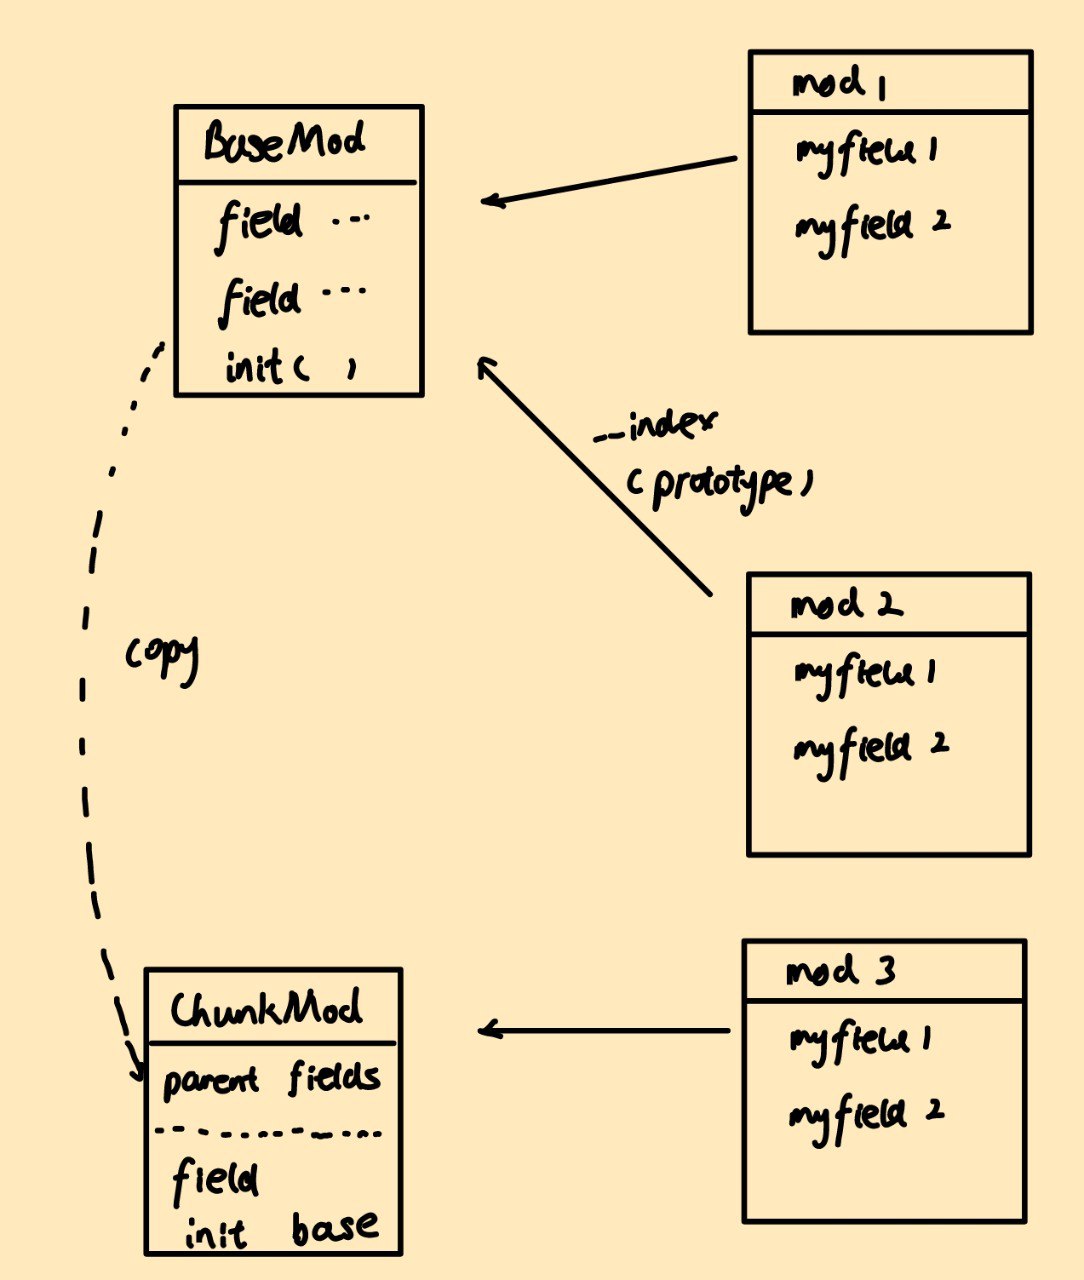 BaseMod
field ...
field ...
init( )
mod 1
myfield 1
myfield 2
__index
(prototype)
mod 2
myfield 1
myfield 2
copy
ChunkMod
parent fields
field
init base
mod 3
myfield 1
myfield 2